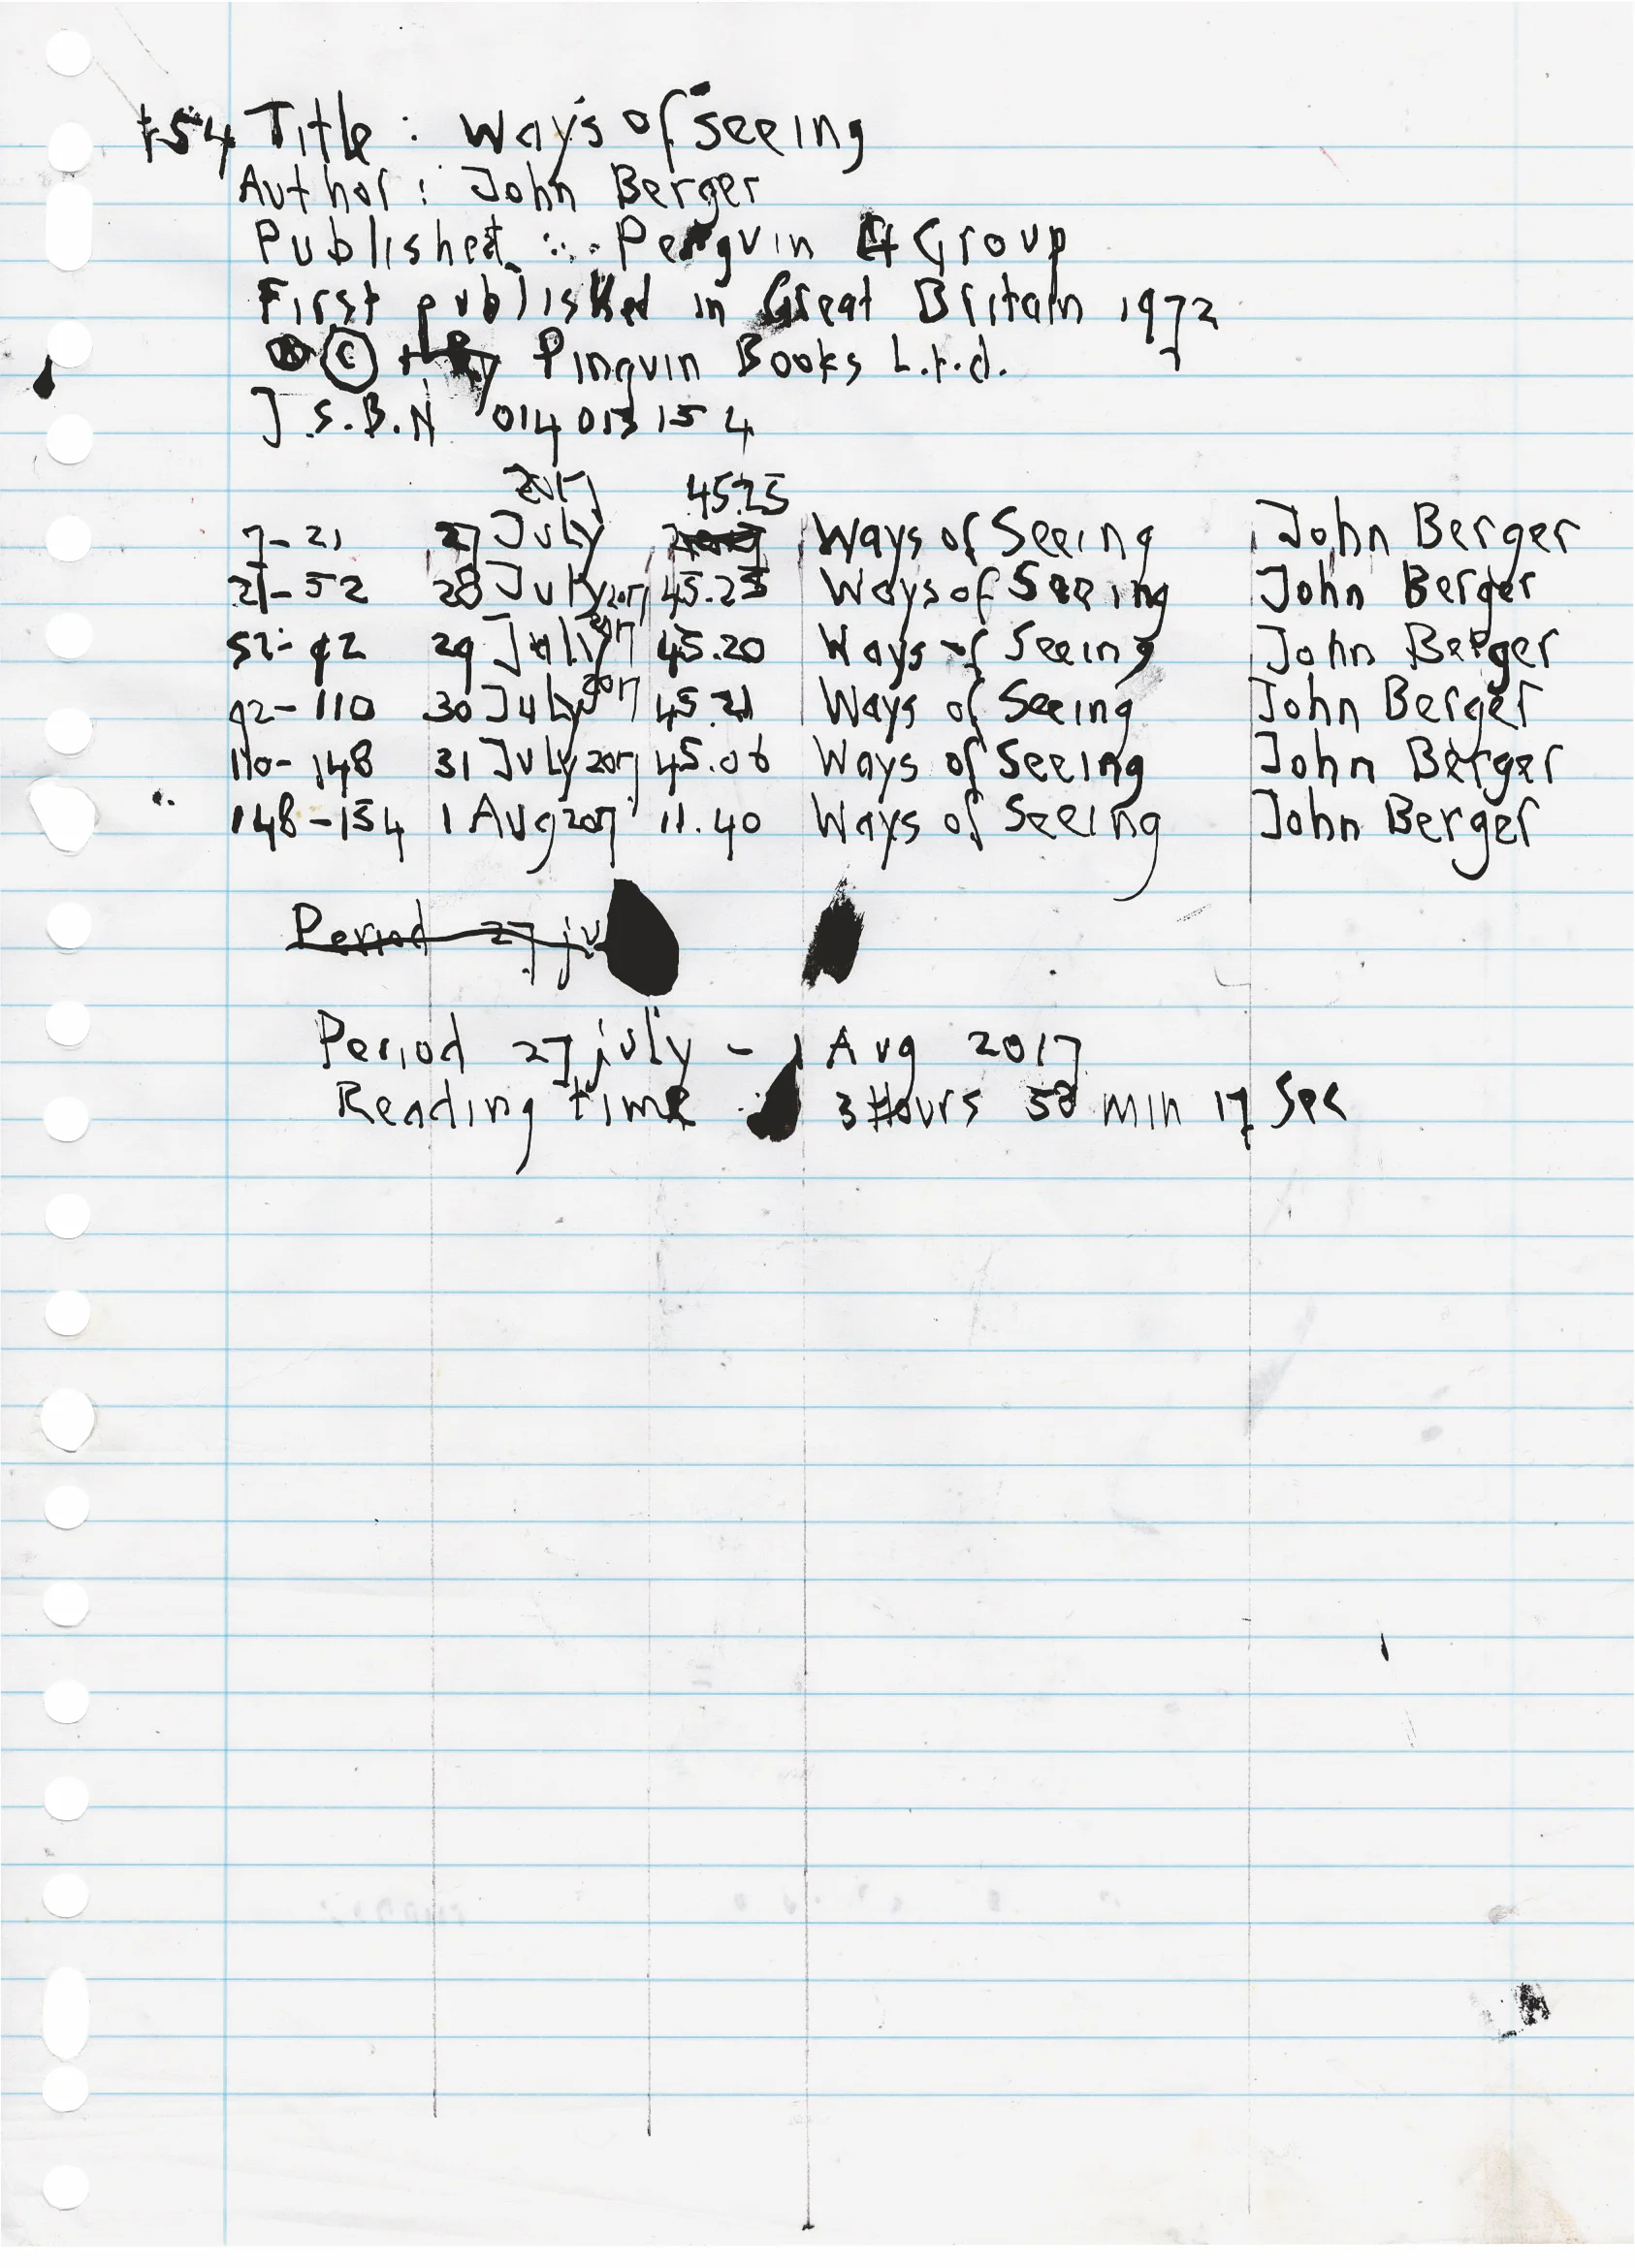 154 Title : Ways of seeing
Author : John Berger
Published : Penguin Group
First published in Great Britain 1972
© Pinguin Books L.t.d.
I.S.B.N 014 013 15 4
2017 45.25
7-21 27 July Ways of Seeing John Berger
21-52 28 July 2017 45.25 Ways of Seeing John Berger
52-92 29 July 2017 45.20 Ways of Seeing John Berger
92-110 30 July 2017 45.21 Ways of Seeing John Berger
110-148 31 July 2017 45.06 Ways of Seeing John Berger
148-154 1 Aug 2017 11.40 Ways of Seeing John Berger
Period 27 ju
Period 27 july - 1 Aug 2017
Reading time 3 Hours 58 min 17 Sec